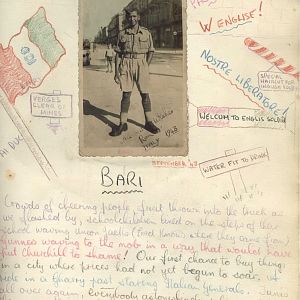 W ENGLISE!
NOSTRE LIBERATORE!
SPECIAL
HAIRCUT FOR
ENGLISH SOLDIER
VERGES
CLEAR OF
MINES
WELCUM TO ENGLIS SOLDIER
SEPTEMBER 43
WATER FIT TO DRINK
BARI
Crowds of cheering people, fruit thrown into the truck as
we flashed by, schoolchildren lined on the steps of their
school waving Union Jacks (Lord knows where they came from)
Gunners waving to the mob in a way that would have
put Churchill to shame! Our first chance to buy things
in a city where prices had not yet begun to soar. A
ride in a gharry past staring Italian Generals.
all over again. Everybody